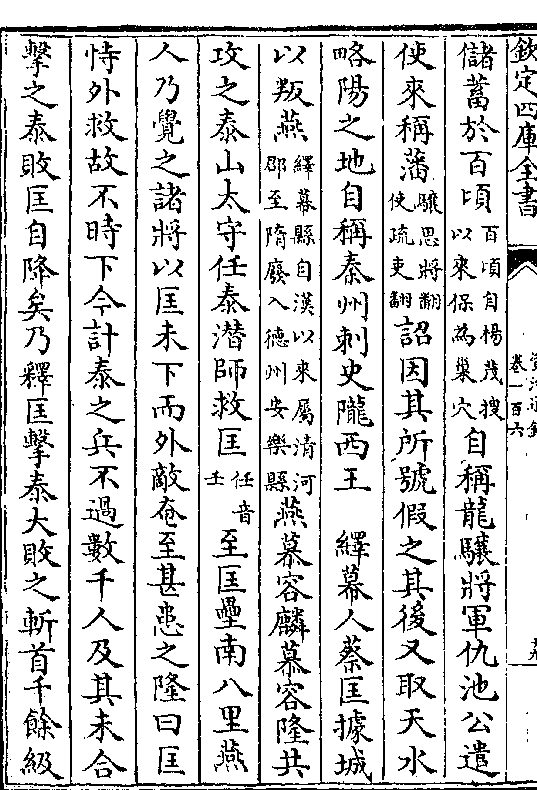 欽定四庫全書
資治通鑑
卷一百六
儲蓄於百頃百頃自楊茂搜以來保為巢穴自稱龍驤將軍仇池公遣
使來稱藩驤思將翻使疏吏翻詔因其所號假之其後又取天水
略陽之地自稱秦州刺史隴西王　繹幕人蔡匡據城
以叛燕繹幕縣自漢以來屬清河郡至隋廢入德州安樂縣燕慕容麟慕容隆共
攻之泰山太守任泰潛師救匡任音壬至匡壘南八里燕
人乃覺之諸將以匡未下而外敵奄至甚患之隆曰匡
恃外救故不時下今計泰之兵不過數千人及其未合
擊之泰敗匡自降矣乃釋匡擊泰大敗之斬首千餘級